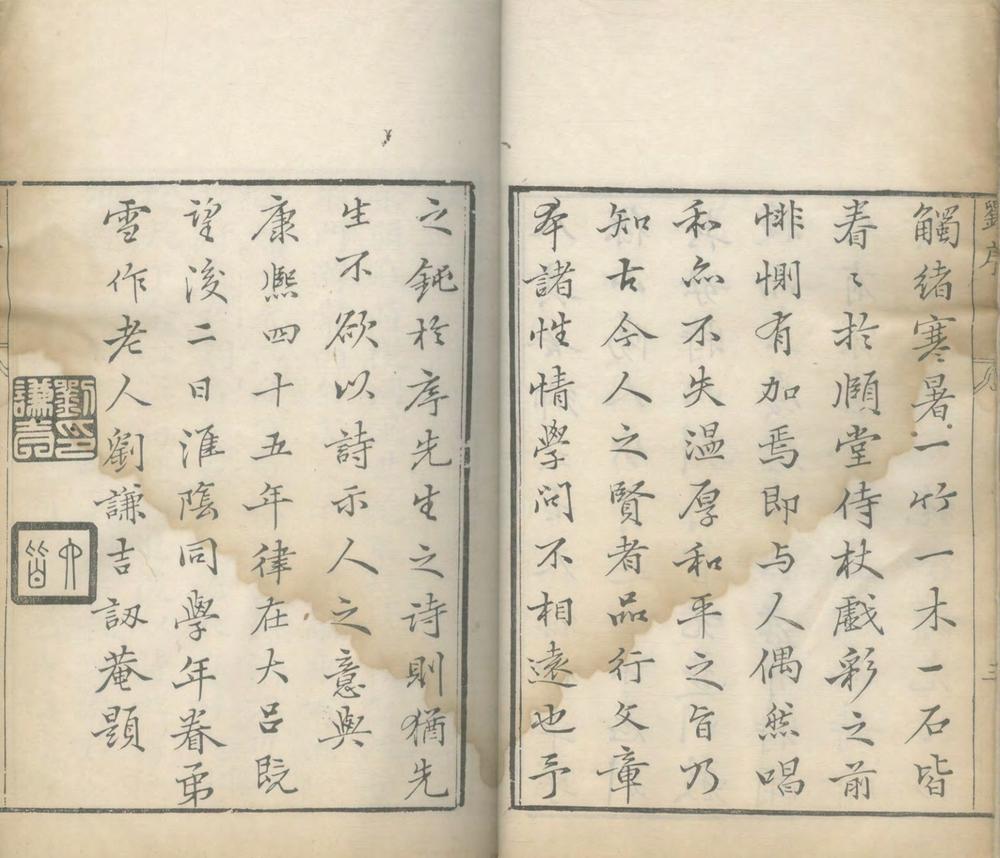 劉序
三
觸緒寒暑一竹一木一石皆
眷〻於頋堂侍杖戲彩之前
悱惻有加焉即与人偶然唱
和亦不失温厚和平之旨乃
知古今人之賢者品行文章
夲諸性情學问不相遠也予
之鈍於序先生之詩則猶先
生不欲以詩示人之意與
康熙四十五年律在大吕既
望後二日淮陰同學年眷弟
雪作老人劉謙吉訒菴題
劉謙吉印